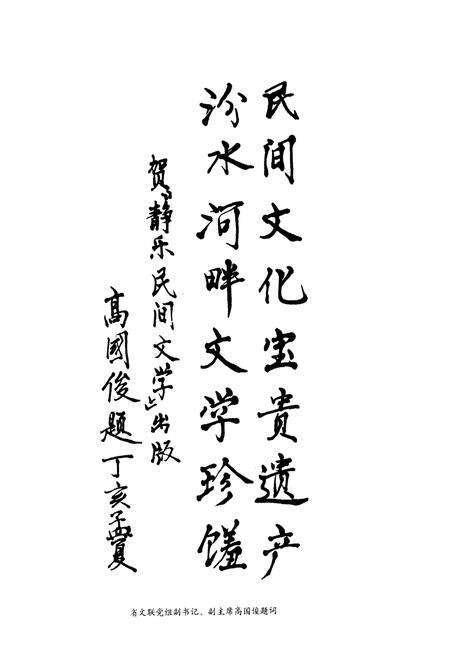 民间文化宝贵遗产
汾水河畔文学珍馐
贺《静乐民间文学》出版
高國俊题丁亥孟夏
省文联党组副书记、副主席高国俊题词